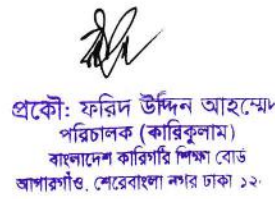 প্রকৌ: ফরিদ উদ্দিন আহম্মেদ
পরিচালক (কারিকুলাম)
বাংলাদেশ কারিগরি শিক্ষা বোর্ড
আগারগাঁও, শেরেবাংলা নগর ঢাকা ১২